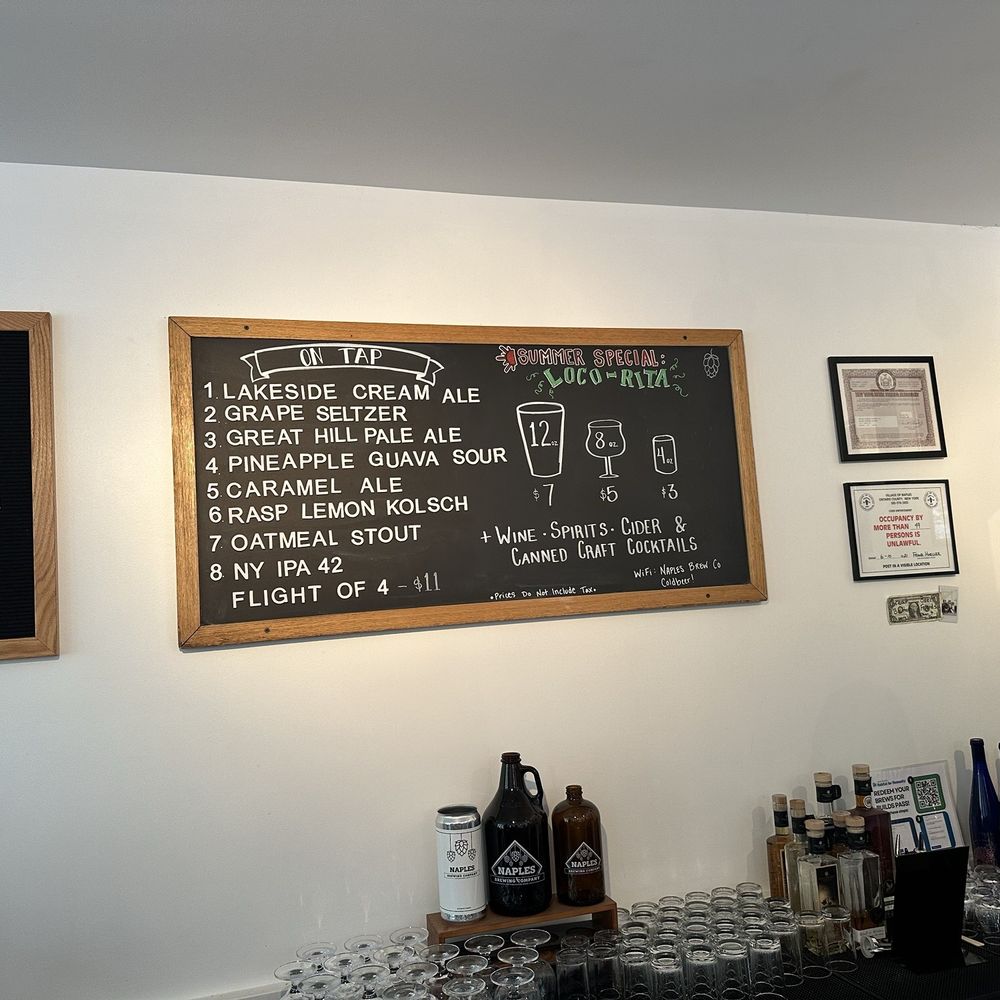 ON TAP
1. LAKESIDE CREAM ALE
2. GRAPE SELTZER
3. GREAT HILL PALE ALE
4. PINEAPPLE GUAVA SOUR
5. CARAMEL ALE
6. RASP LEMON KOLSCH
7. OATMEAL STOUT
8. NY IPA 42
FLIGHT OF 4 - $11
SUMMER SPECIAL:
LOCO-RITA
12 oz.
8 oz.
4 oz.
$7
$5
$3
+ WINE · SPIRITS · CIDER &
CANNED CRAFT COCKTAILS
WIFI: NAPLES BREW CO
Coldbeer!
*Prices Do Not Include Tax*
VILLAGE OF NAPLES
ONTARIO COUNTY NEW YORK
OCCUPANCY BY
MORE THAN 49
PERSONS IS
UNLAWFUL.
POST IN A VISIBLE LOCATION
NAPLES
BREWING COMPANY
NAPLES
BREWING COMPANY
NAPLES
BREWING COMPANY
REDEEM YOUR
BREWS FOR
BUILDS PASS!